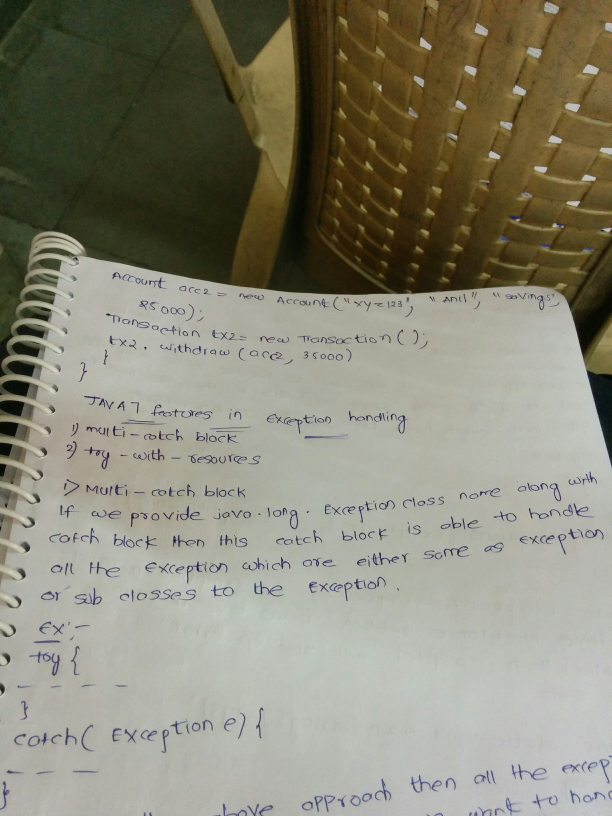 Account acc2 = new Account("xyz123", "Anil", "savings",
25000);
Transaction tx2 = new Transaction();
tx2.withdraw(acc2, 35000)
}
}
JAVA 7 features in exception handling
1) multi-catch block
2) try-with-resources
i) Multi-catch block
If we provide java.lang.Exception class name along with
catch block then this catch block is able to handle
all the exception which are either same as exception
or sub classes to the Exception.
Ex:-
try {
- - - -
}
catch( Exception e) {
- - -
}
above approach then all the excep
want to hand